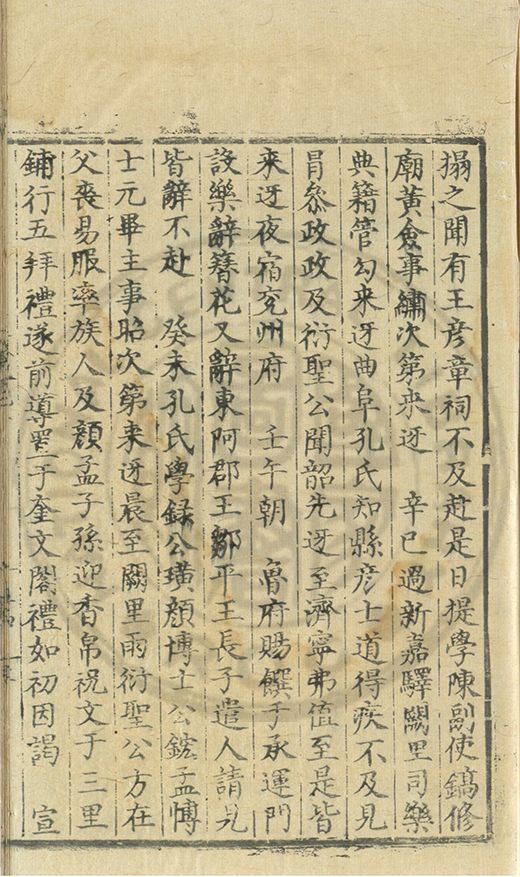 搨之聞有王彦章祠不及赴是日提學陳副使鎬修
廟黃僉事繡次第来迓　辛巳過新嘉驛闕里司樂
典籍管勾来迓曲阜孔氏知縣彦士道得疾不及見
冐叅政政及衍聖公聞韶先迓至濟寧弗值至是皆
来迓夜宿兖州府　壬午朝　魯府賜饌于承運門
設樂辭簪花又辭東阿郡王鄒平王長子遣人請見
皆辭不赴　癸未孔氏學錄公璜顔博士公鋐孟博
士元畢主事昭次第来迓晨至闕里雨衍聖公方在
父喪易服率族人及顔孟子孫迎香帛祝文于三里
鋪行五拜禮遂前導置于奎文閣禮如初因謁　宣